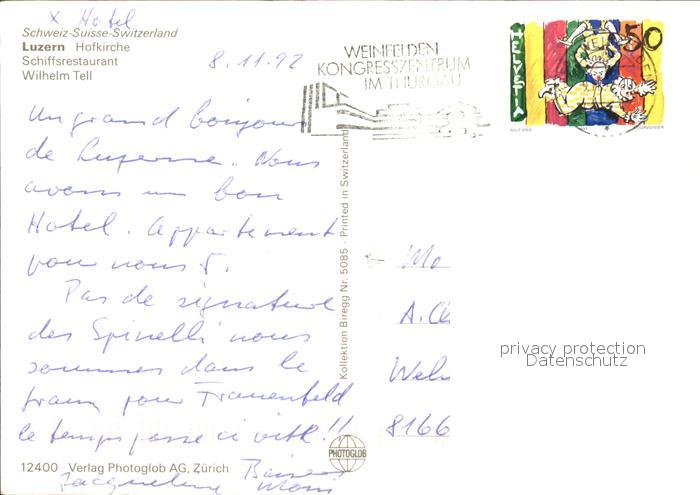 x Hotel
Schweiz-Suisse-Switzerland
Luzern Hofkirche
Schiffsrestaurant
Wilhelm Tell
8.11.92
WEINFELDEN
KONGRESSZENTRUM
IM THURGAU
HELVETIA
50
Un grand bonjour
de Luzerne. Nous
avons un bon
Hotel. Appartement
pour nous 5.
Pas de signature
des Spinelli nous
sommes dans le
train pour Frauenfeld
le temps passe si vite!!
Baisers
Jacqueline
Kollektion Biregg Nr. 5085 - Printed in Switzerland
Mo
A.
8166
privacy protection
Datenschutz
PHOTOGLOB
12400 Verlag Photoglob AG, Zürich